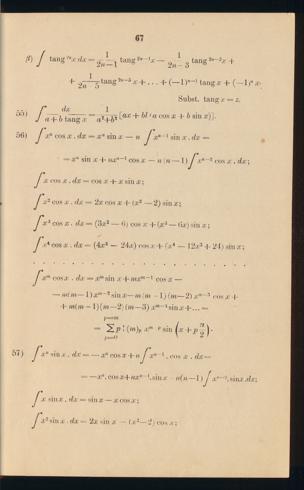 67
β) ∫ tang ²ⁿx dx = 1/(2n−1) tang ²ⁿ⁻¹x − 1/(2n−3) tang ²ⁿ⁻³x +
+ 1/(2n−5) tang ²ⁿ⁻⁵x + . . . + (−1)ⁿ⁻¹ tang x + (−1)ⁿ x.
Subst. tang x = z.
55) ∫ dx/(a + b tang x) = 1/(a² + b²) [ax + bl (a cos x + b sin x)].
56) ∫ xⁿ cos x . dx = xⁿ sin x − n ∫ xⁿ⁻¹ sin x . dx =
= xⁿ sin x + nxⁿ⁻¹ cos x − n (n−1) ∫ xⁿ⁻² cos x . dx;
∫ x cos x . dx = cos x + x sin x;
∫ x² cos x . dx = 2x cos x + (x² − 2) sin x;
∫ x³ cos x . dx = (3x² − 6) cos x + (x³ − 6x) sin x;
∫ x⁴ cos x . dx = (4x³ − 24x) cos x + (x⁴ − 12x² + 24) sin x;
. . . . . . . . . . . . . . . . . .
∫ xᵐ cos x . dx = xᵐ sin x + mxᵐ⁻¹ cos x −
− m(m−1) xᵐ⁻² sin x − m (m−1) (m−2) xᵐ⁻³ cos x +
+ m (m−1) (m−2) (m−3) xᵐ⁻⁴ sin x + ... =
p=m
= ∑ p! (m)ₚ xᵐ⁻ᵖ sin (x + p π/2).
p=0
57) ∫ xⁿ sin x . dx = −xⁿ cos x + n ∫ xⁿ⁻¹ . cos x . dx =
= −xⁿ. cos x + nxⁿ⁻¹. sin x − n(n−1) ∫ xⁿ⁻². sin x. dx;
∫ x sin x . dx = sin x − x cos x;
∫ x² sin x . dx = 2x sin x − (x² − 2) cos x;